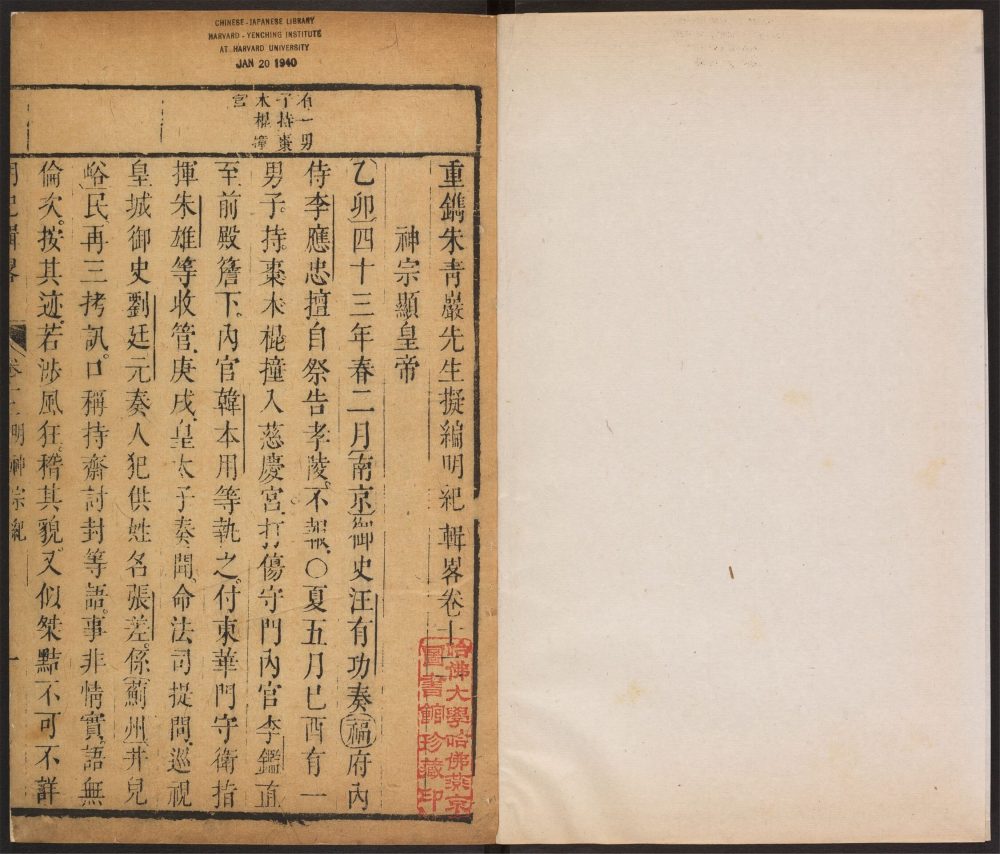 CHINESE-JAPANESE LIBRARY
HARVARD-YENCHING INSTITUTE
AT HARVARD UNIVERSITY
JAN 20 1940
有一男
子持棗
木棍撞
宮
重鐫朱青巖先生擬編明紀輯畧卷十
神宗顯皇帝
乙卯四十三年春二月南京御史汪有功奏福府內
侍李應忠擅自祭告孝陵不報○夏五月己酉有一
男子持棗木棍撞入慈慶宮打傷守門內官李鑑直
至前殿簷下內官韓本用等執之付東華門守衛指
揮朱雄等收管庚戌皇太子奏聞命法司提問巡視
皇城御史劉廷元奏人犯供姓名張差係薊州井兒
峪民再三拷訊口稱持齋討封等語事非情實語無
倫次按其迹若涉風狂稽其貌又似桀黠不可不詳
明紀輯畧
明神宗紀
一
哈佛大學哈佛燕京
圖書館珍藏印